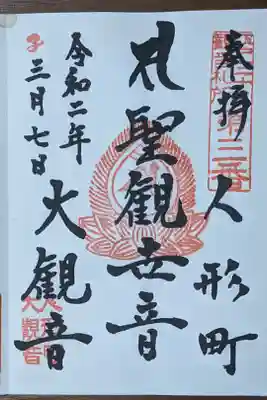 奉拝
人形町
聖観世音
大観音
令和二年
三月七日
子
大観音